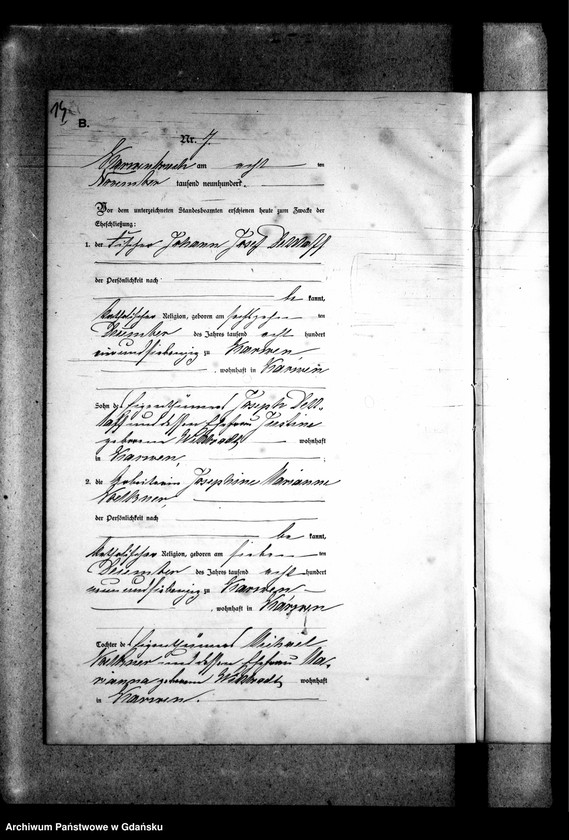 14
B.
Nr. 7.
Karwenbruch am acht ten
November tausend neunhundert.
Vor dem unterzeichneten Standesbeamten erschienen heute zum Zwecke der
Eheschließung:
1. der Fischer Johann Josef Dettlaff
der Persönlichkeit nach
be kannt,
katholischer Religion, geboren am sechszehn ten
Dezember des Jahres tausend acht hundert
vierundsiebenzig zu Karwen,
, wohnhaft in Karwen
Sohn des Eigenthümers Joseph Dett-
laff und dessen Ehefrau Justine
geborenen wohnhaft
in Karwen,
2. die Arbeiterin Josephine Marianne
Voelkner,
der Persönlichkeit nach
be kannt,
katholischer Religion, geboren am sieben ten
Dezember des Jahres tausend acht hundert
neunundsiebenzig zu Karwen,
, wohnhaft in Karwen
Tochter des Eigenthümers Michael
Voelkner und dessen Ehefrau Ma-
rianna geborenen wohnhaft
in Karwen.
Archiwum Państwowe w Gdańsku